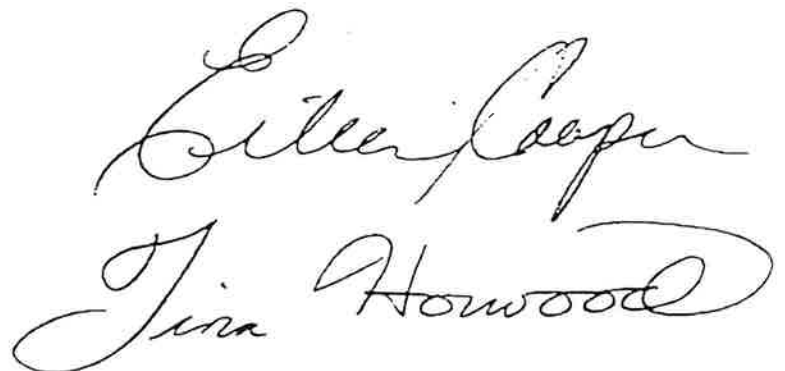 Eileen Cooper
Tina Horwood